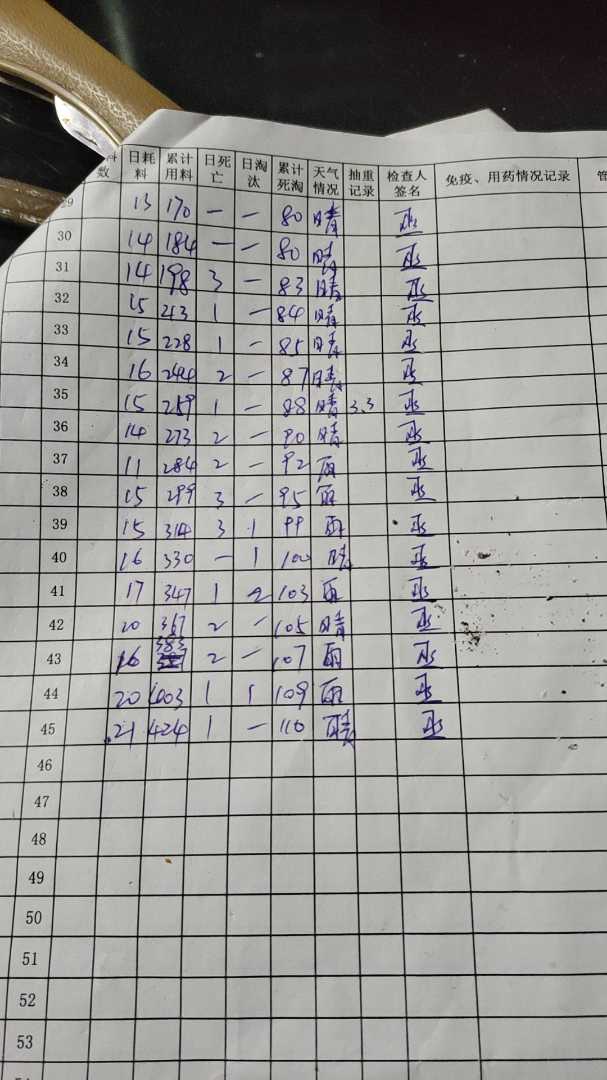 数 日耗料 累计用料 日死亡 日淘汰 累计死淘 天气情况 抽重记录 检查人签名 免疫、用药情况记录 管
29 13 170 — — 80 晴
30 14 184 — — 80 晴
31 14 198 3 — 83 晴
32 15 213 1 — 84 晴
33 15 228 1 — 85 晴
34 16 244 2 — 87 晴
35 15 259 1 — 88 晴 3.3
36 14 273 2 — 90 晴
37 11 284 2 — 92 雨
38 15 299 3 — 95 雨
39 15 314 3 1 99 雨
40 16 330 — 1 100 晴
41 17 347 1 2 103 雨
42 20 367 2 — 105 晴
43 16 383 2 — 107 雨
44 20 403 1 1 109 雨
45 21 424 1 — 110
46
47
48
49
50
51
52
53